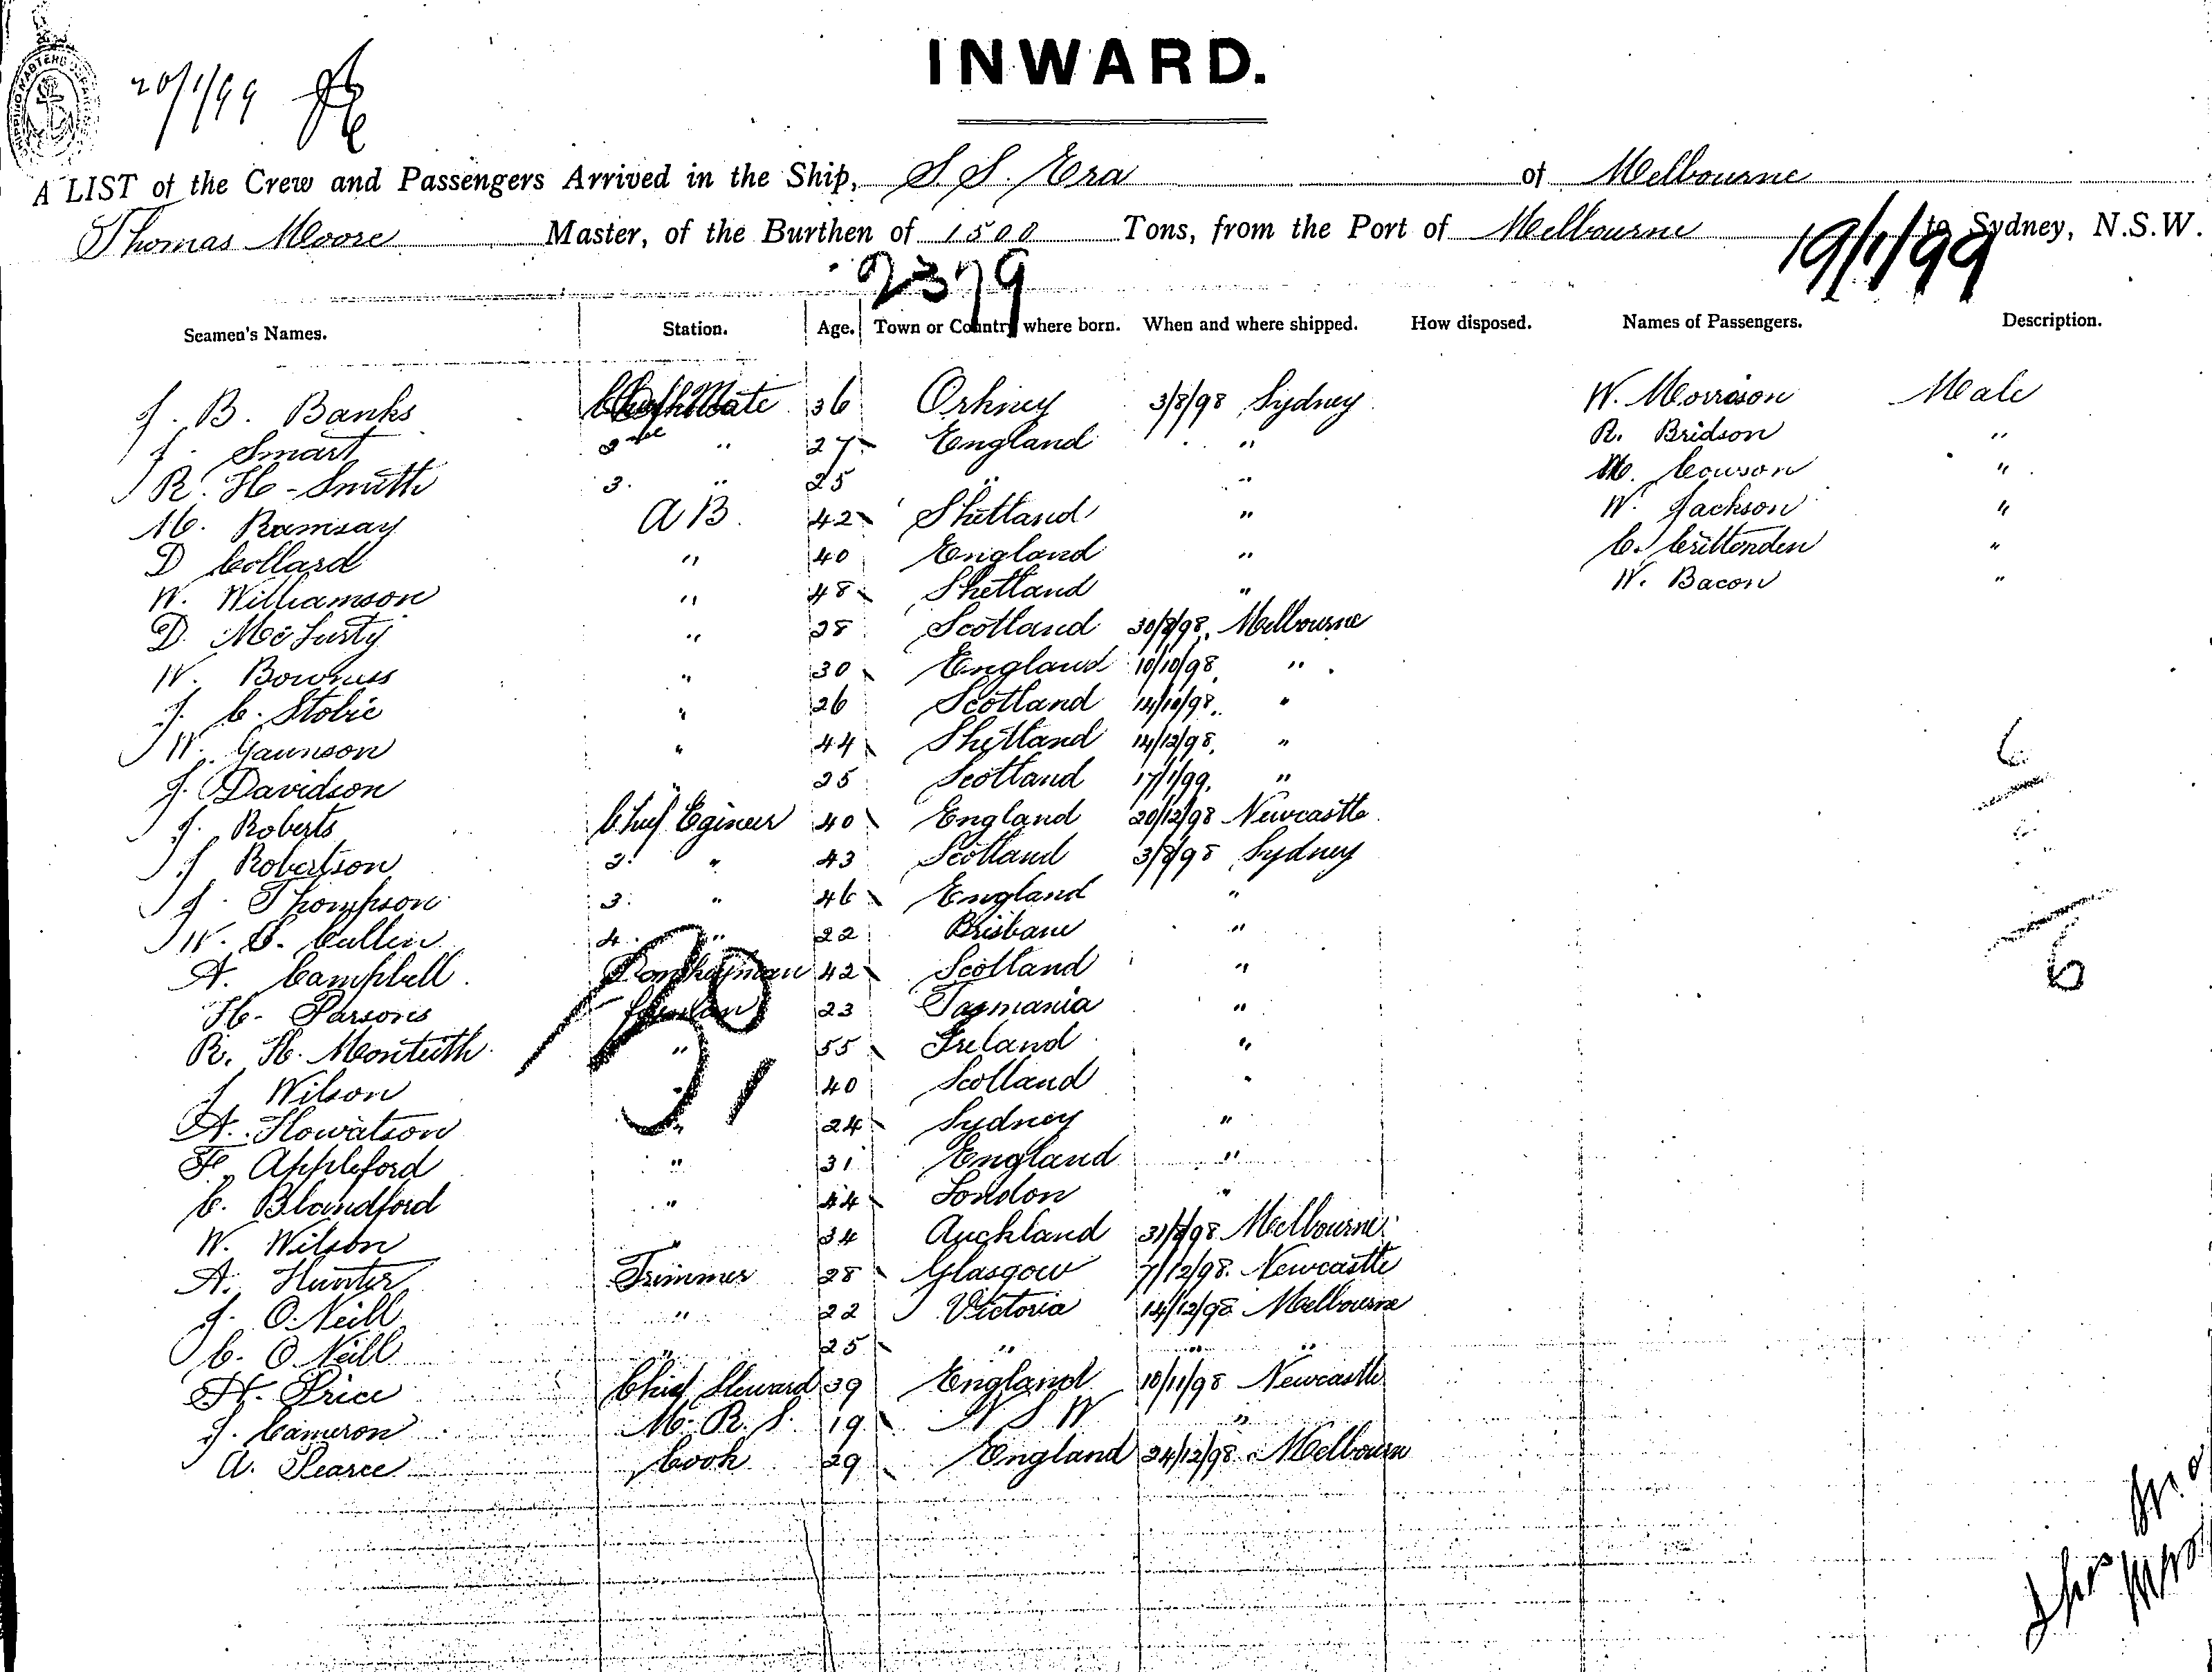 INWARD.
SHIPPING MASTERS DEPARTMENT
20/1/99
A LIST of the Crew and Passengers Arrived in the Ship, S.S. Era of Melbourne
Thomas Moore Master, of the Burthen of 1500 Tons, from the Port of Melbourne to Sydney, N.S.W.
2379 19/1/99
Seamen's Names. Station. Age. Town or Country where born. When and where shipped. How disposed. Names of Passengers. Description.
J. B. Banks Chief Mate 36 Orkney 3/8/98 Sydney W. Morrison Male
J. Smart 2nd " 27 England " R. Bridson "
R. H. Smith 3. " 25 " " Cowson "
M. Ramsay A B. 42 Shetland " W. Jackson "
D Collard " 40 England " C. Crittenden "
W. Williamson " 48 Shetland " W. Bacon "
D. McLusty " 28 Scotland 30/8/98. Melbourne
W. Bowness " 30 England 10/10/98. "
J. C. Stobie " 26 Scotland 14/10/98. "
W. Gaunson " 44 Shetland 14/12/98. "
J. Davidson " 25 Scotland 17/1/99. "
J. Roberts Chief Egineer 40 England 20/12/98 Newcastle
J Robertson 2. " 43 Scotland 3/8/98 Sydney
J. Thompson 3. " 46 England "
W. S. Cullen 4. " 22 Brisbane "
A. Campbell Donkeyman 42 Scotland "
H. Parsons Fireman 23 Tasmania "
R. H. Monteith " 55 Ireland "
J Wilson " 40 Scotland "
A. Howatson " 24 Sydney "
F. Appleford " 31 England "
C. Blandford " 44 London "
W. Wilson " 34 Auckland 31/8/98 Melbourne
A. Hunter Trimmer 28 Glasgow 7/12/98. Newcastle
J. O'Neill " 22 Victoria 14/12/98 Melbourne
C. O'Neill " 25 " " "
H. Price Chief Steward 39 England 10/11/98 Newcastle
J. Cameron M. R. S. 19 N S W " "
A. Pearce Cook 29 England 24/12/98. Melbourn
6
6